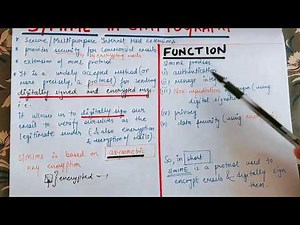 * Secure / Multipurpose Internet Mail extensions
* provides security for commercial emails
by encrypting mails
* extension of mime protocol
* It is a widely accepted method (or
more precisely, a protocol) for sending
digitally signed and encrypted msg.
i.e
It allows us to digitally sign our
emails to verify ourselves as the
legitimate sender (& also encryption
& decryption of mails)
S/MIME is based on asymmetric
key encryption
encrypted
FUNCTION
S/MIME provides
(i) authentication
(ii) message
(iii) Non using
digital
(iv) privacy
(v) data security
So, in short
S/MIME is a protocol used to
encrypt emails & digitally sign
them.